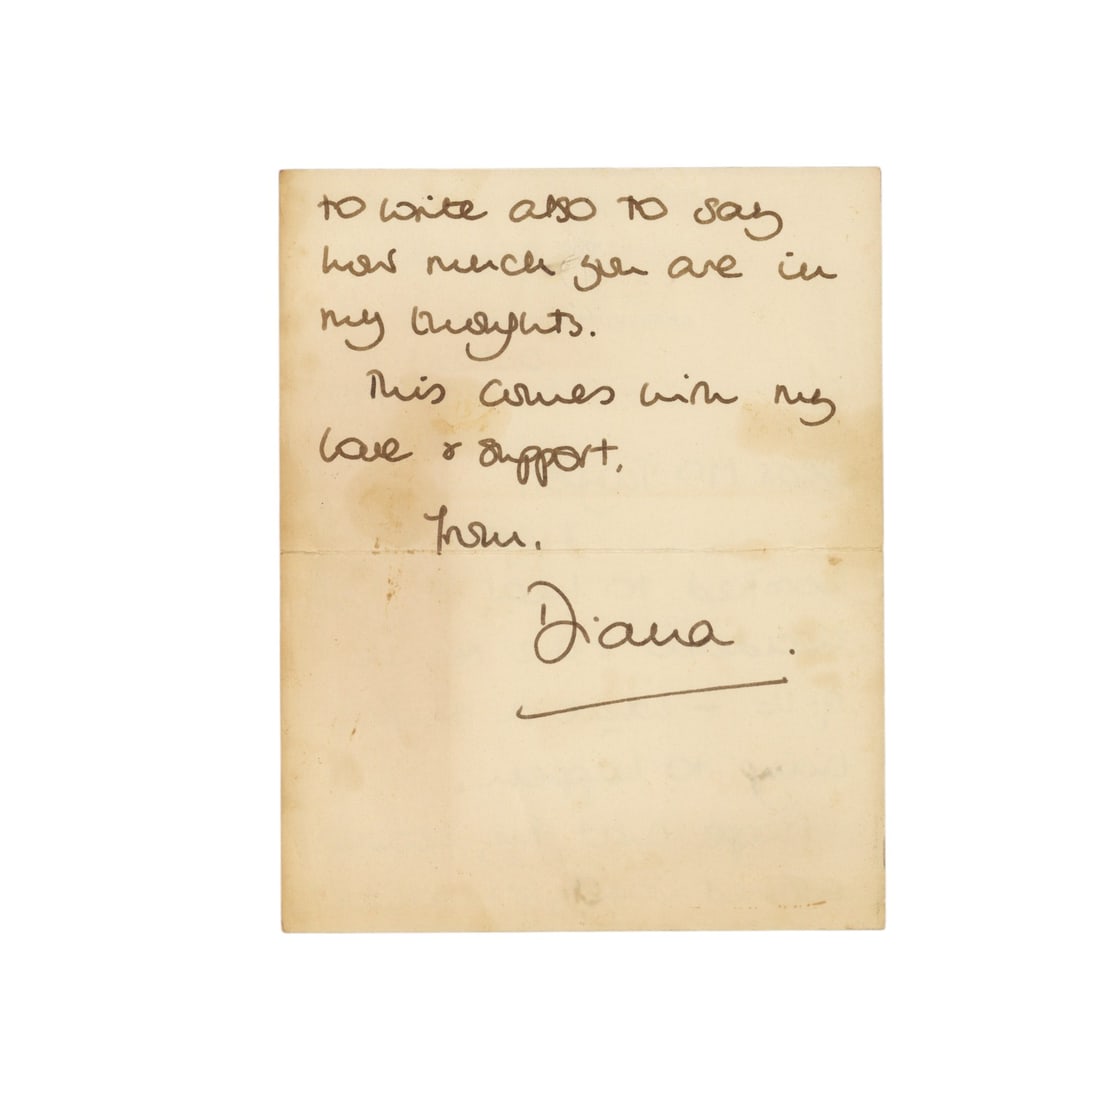 to write also to say
how much you are in
my thoughts.
This comes with my
love & support.
from.
Diana.